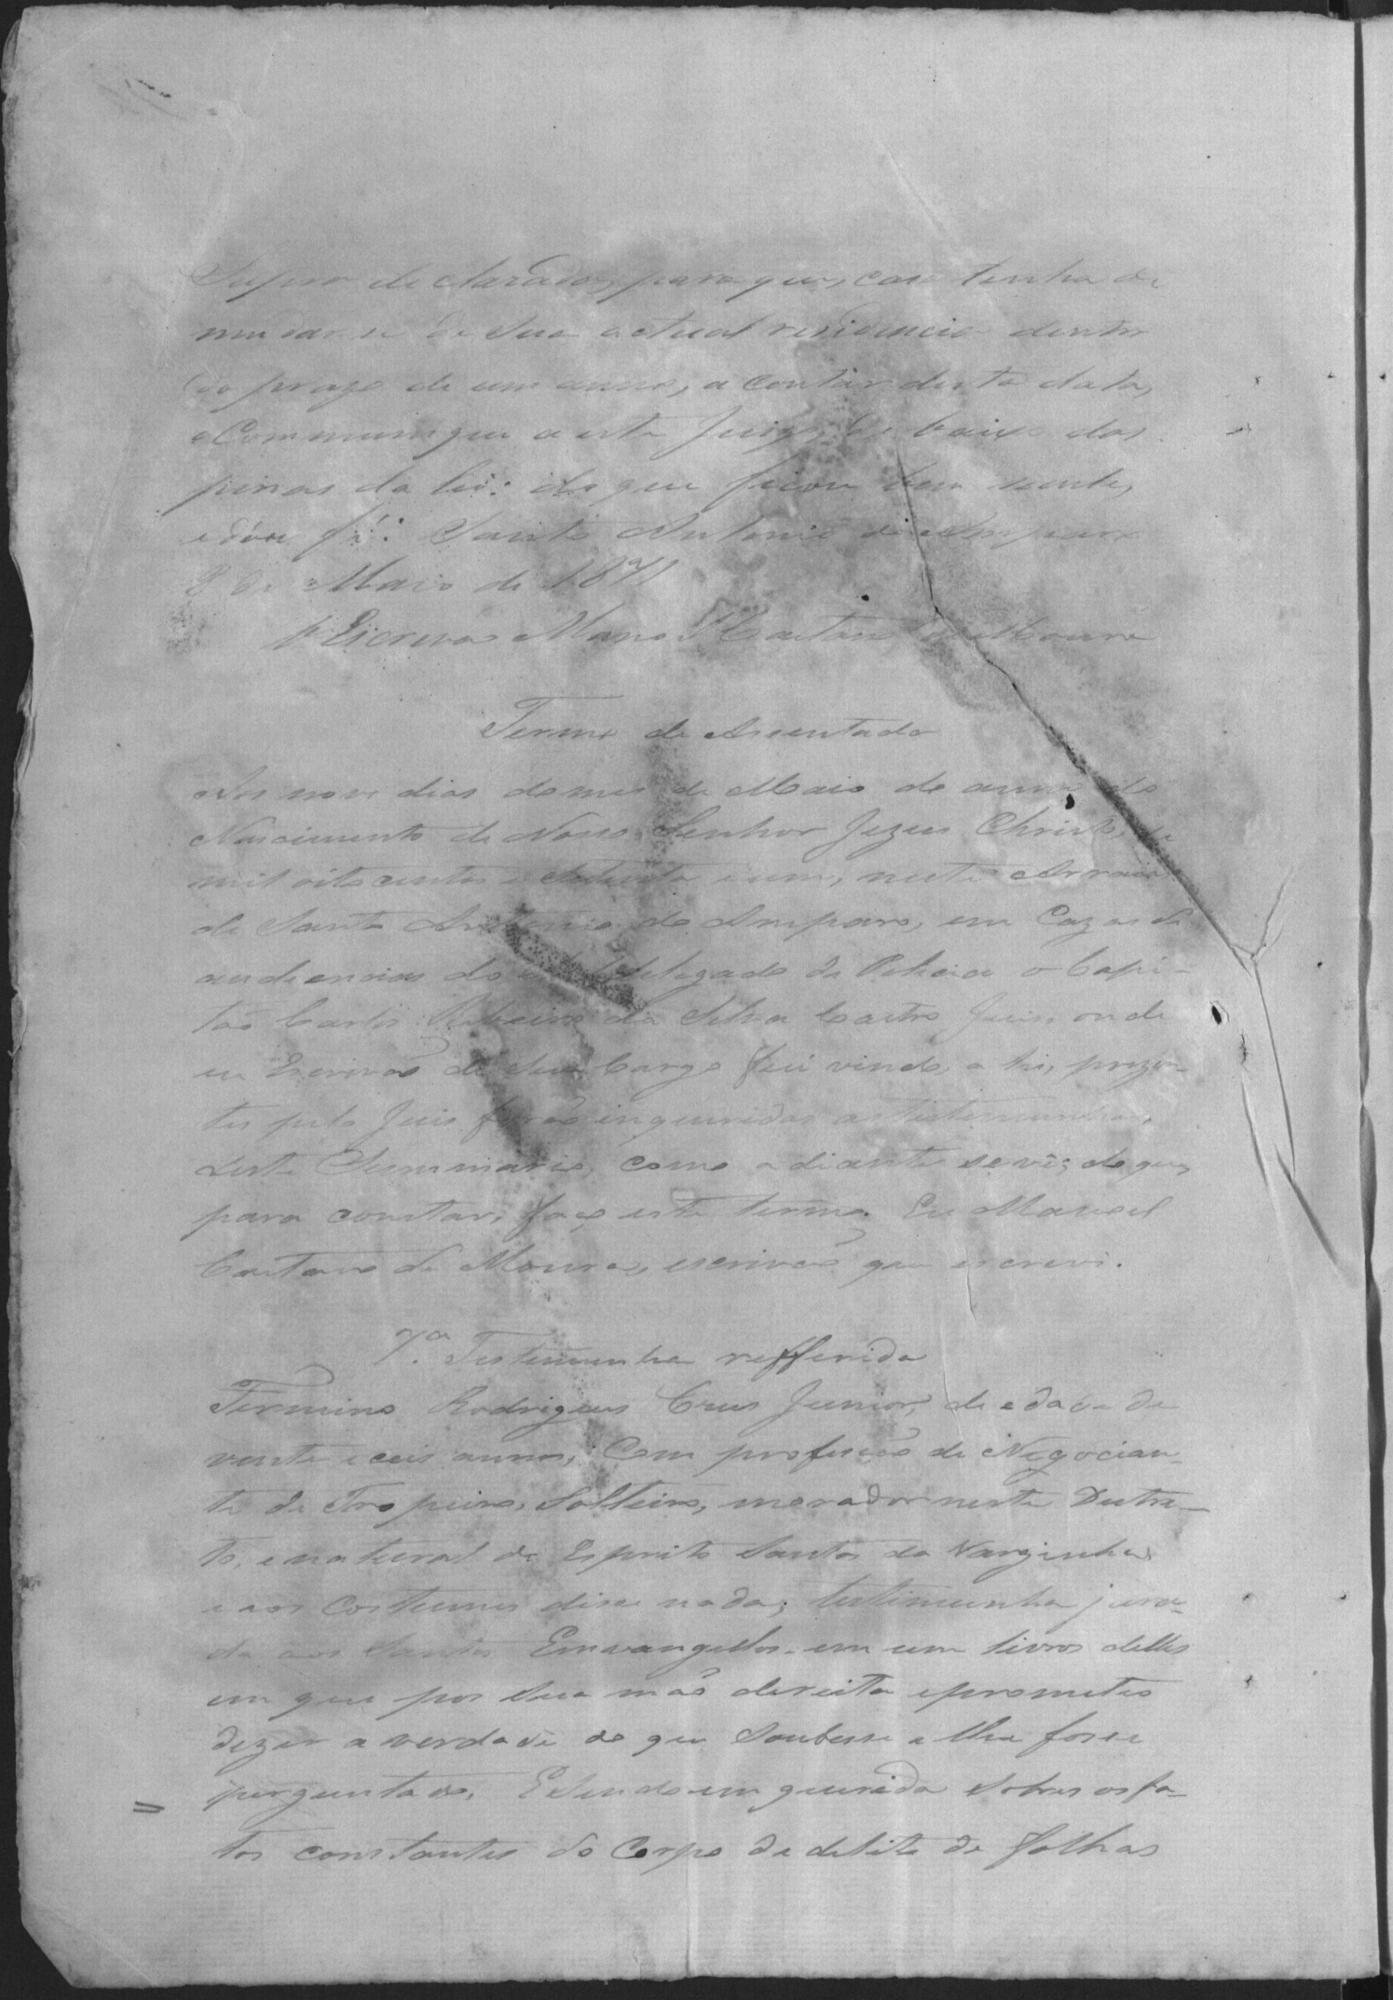 Supra declarados, para que, caso tenha de
mudar se de sua actual residencia dentro
do praso de um anno, a contar desta data,
o Communique a este Juiso de baixo das
penas da lei: do que ficou bem sciente,
e dou fé. Santo Antonio do Amparo
8 de Maio de 1871
O Escrivão Manoel Caetano de Moura
Termo de Assentada
Aos nove dias do mes de Maio do anno do
Nascimento de Nosso Senhor Jezus Christo de
mil oito centos e setenta e um, neste Arraial
de Santo Antonio do Amparo, em Cazas de
audiencias do Subdelegado de Policia o Capi-
tão Carlos Ribeiro da Silva Castro, Juis, onde
eu Escrivão de seu Cargo fui vindo, a hi, prezen-
tes pelo Juis forão inqueridas as testemunhas
deste Summario, como adiante se vê; do que,
para constar, faço este termo. Eu Manoel
Caetano de Moura, escrivão que escrevi.
7ª Testemunha refferida
Firmino Rodrigues Crus Junior, de edade de
vinte e ceis annos, Com profissão de Negocian-
te de Tropeiro, Solteiro, morador neste Destri-
to, e natural do Espirito Santo da Varginha
e aos Costumes dise nada; testemunha jura-
da aos Santos Emvangelhos em um livro delles
em que pos sua mão dereita e prometeo
dizer a verdade do que Soubesse e lhe fosse
perguntado. E sendo enquerida sobre os fa-
tos constantes do Corpo de delito de folhas